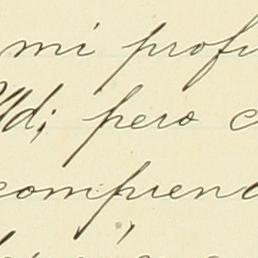 mi profu
Vd; pero c
comprend